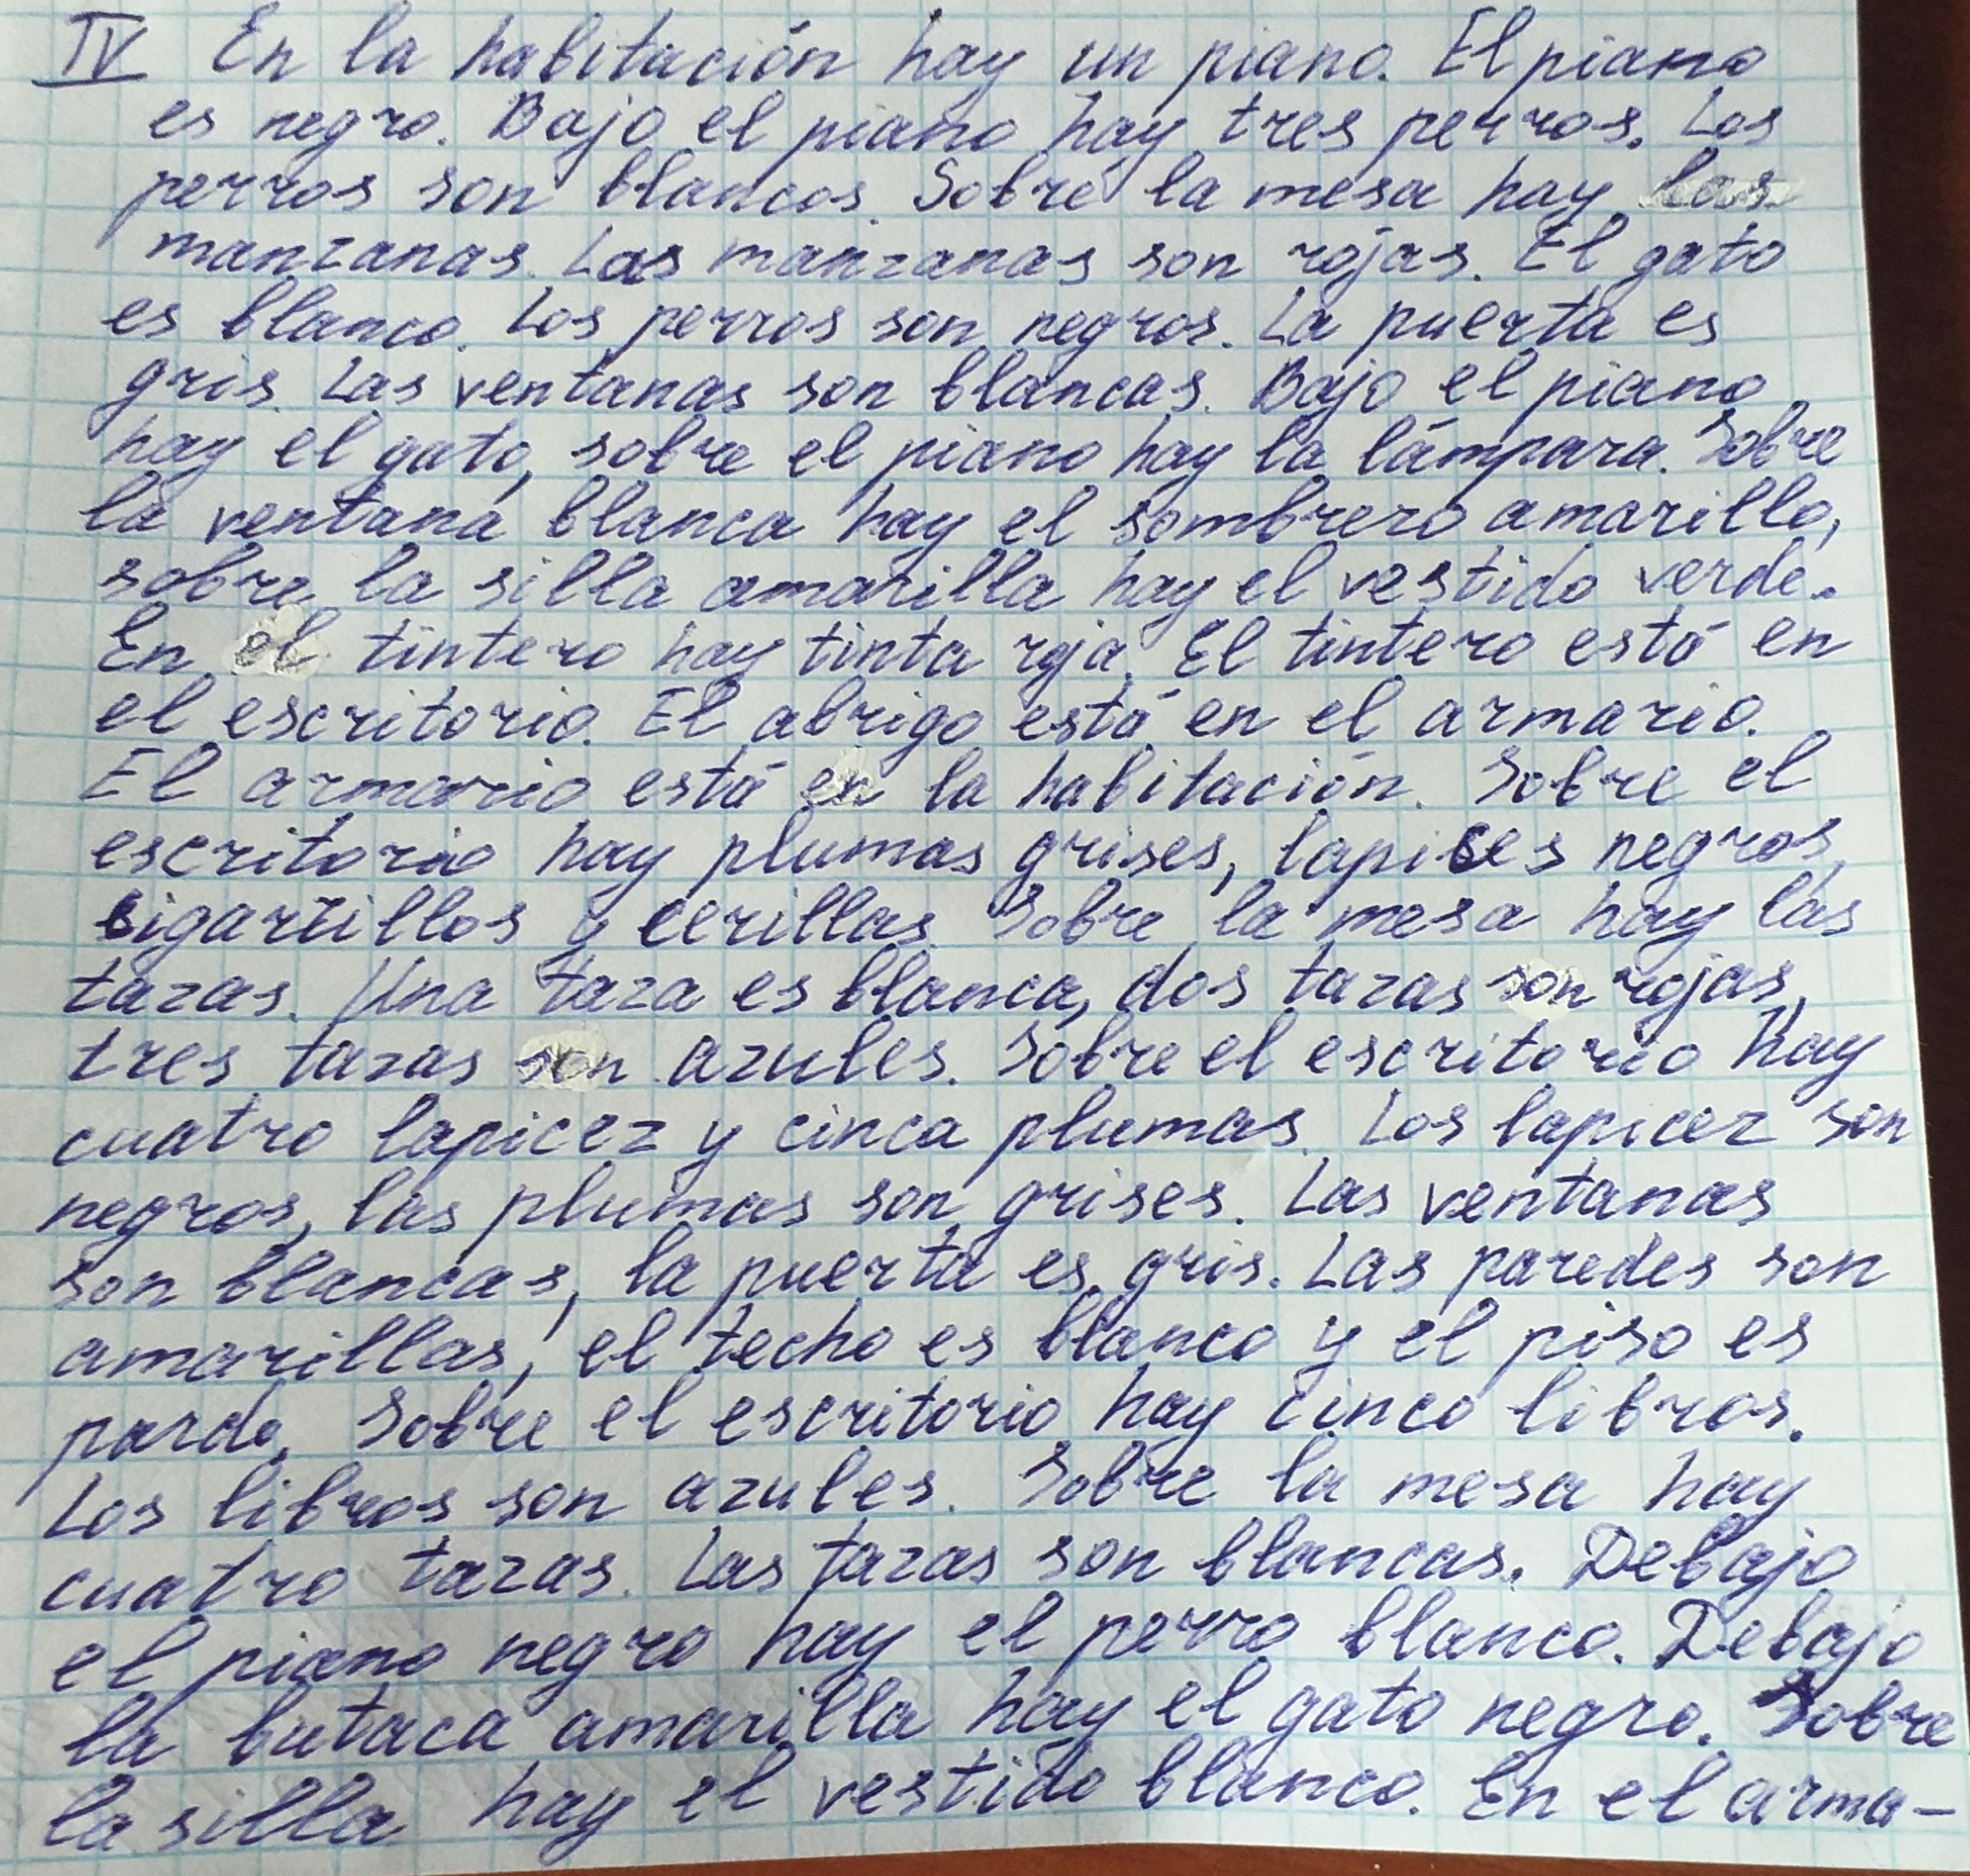 IV En la habitación hay un piano. El piano
es negro. Bajo el piano hay tres perros. Los
perros son blancos. Sobre la mesa hay las
manzanas. Las manzanas son rojas. El gato
es blanco. Los perros son negros. La puerta es
gris. Las ventanas son blancas. Bajo el piano
hay el gato, sobre el piano hay la lámpara. Sobre
la ventana blanca hay el sombrero amarillo,
sobre la silla amarilla hay el vestido verde.
En el tintero hay tinta roja. El tintero está en
el escritorio. El abrigo está en el armario.
El armario está en la habitación. Sobre el
escritorio hay plumas grises, lapices negros,
cigarrillos y cerillas. Sobre la mesa hay las
tazas. Una taza es blanca, dos tazas son rojas,
tres tazas son azules. Sobre el escritorio hay
cuatro lapicez y cinca plumas. Los lapicez son
negros, las plumas son grises. Las ventanas
son blancas, la puerta es gris. Las paredes son
amarillas, el techo es blanco y el piso es
pardo. Sobre el escritorio hay cinco libros.
Los libros son azules. Sobre la mesa hay
cuatro tazas. Las tazas son blancas. Debajo
el piano negro hay el perro blanco. Debajo
la butaca amarilla hay el gato negro. Sobre
la silla hay el vestido blanco. En el arma-